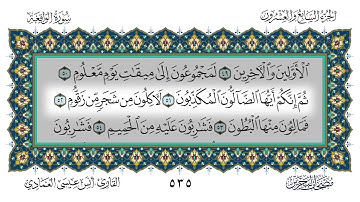 الجزء السابع والعشرون
سورة الواقعة
ٱلْأَوَّلِينَ وَٱلْأَخِرِينَ ٤٩ لَمَجْمُوعُونَ إِلَىٰ مِيقَٰتِ يَوْمٍ مَّعْلُومٍ ٥٠
ثُمَّ إِنَّكُمْ أَيُّهَا ٱلضَّآلُّونَ ٱلْمُكَذِّبُونَ ٥١ لَأَكِلُونَ مِن شَجَرٍ مِّن زَقُّومٍ ٥٢
فَمَالِـُٔونَ مِنْهَا ٱلْبُطُونَ ٥٣ فَشَٰرِبُونَ عَلَيْهِ مِنَ ٱلْحَمِيمِ ٥٤ فَشَٰرِبُونَ
٥٣٥
القارئ: ابن عيسى العمادي